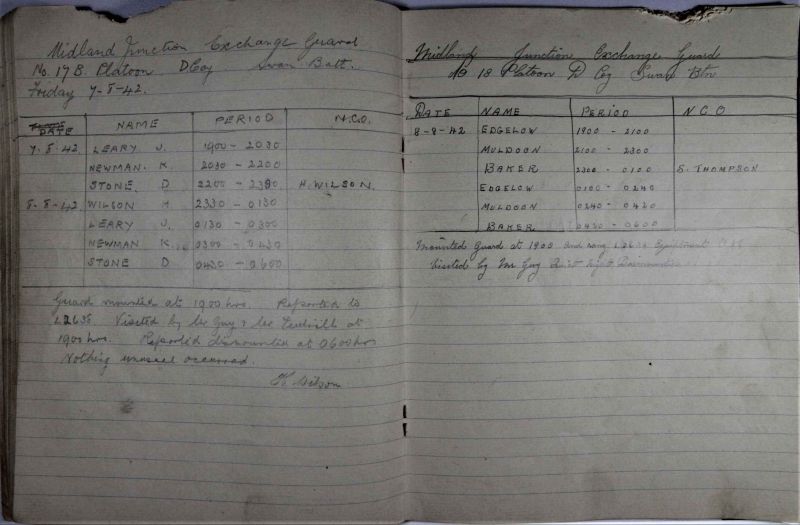 Midland Junction Exchange Guard
No. 17 B. Platoon D Coy Swan Batt.
Friday 7-8-42.
DATE NAME PERIOD N.C.O.
7-8-42 LEARY J. 1900 - 2030
NEWMAN. K 2030 - 2200
STONE. D 2200 - 2330 H. WILSON.
8-8-42 WILSON H 2330 - 0130
LEARY J. 0130 - 0300
NEWMAN K 0300 - 0430
STONE D 0430 - 0600
Guard mounted at 1900 hrs. Reported to
L2636 Visited by Lt Guy & Lt at
1900 hrs. Reported dismounted at 0600 hrs
Nothing unusual occurred.
H Wilson
Midland Junction Exchange Guard
No 18 Platoon D Coy Swan Btn
DATE NAME PERIOD N C O
8-8-42 EDGELOW 1900 - 2100
MULDOON 2100 - 2300
BAKER 2300 - 0100 S. THOMPSON
EDGELOW 0100 - 0240
MULDOON 0240 - 0420
BAKER 0420 - 0600
Mounted guard at 1900 and rang L2636 Equipment
Visited by Mr Guy Quiet night Dismounted